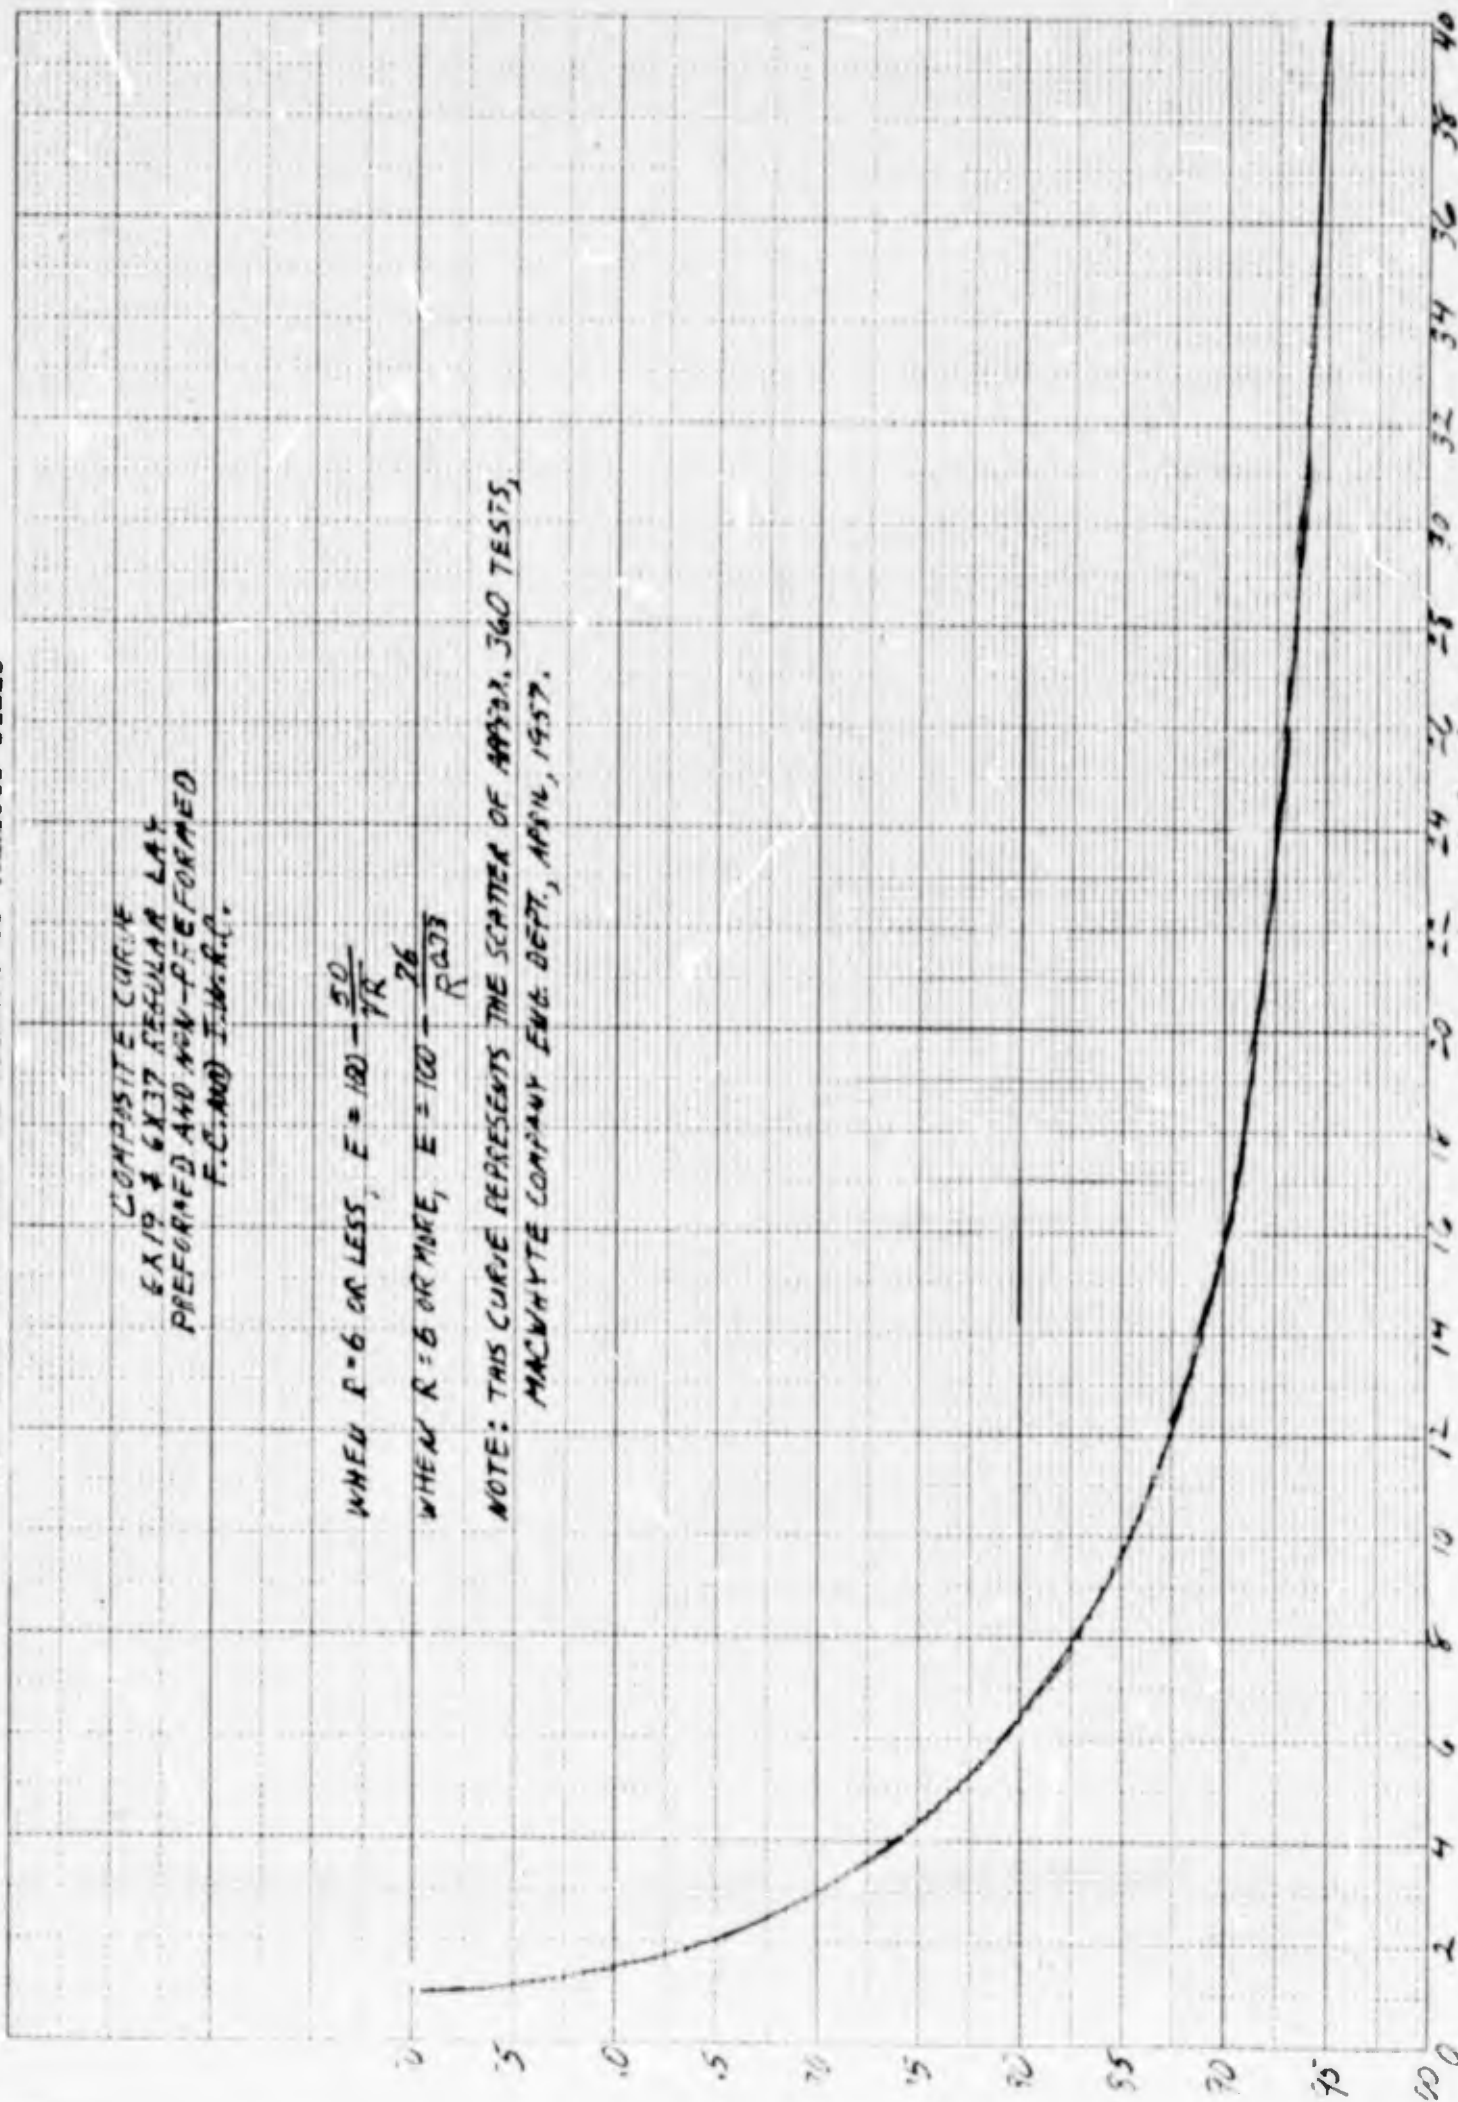 COMPOSITE CURVE
6X19 & 6X37 REGULAR LAY
PREFORMED AND NON-PREFORMED
F.C. AND I.W.R.C.
WHEN R=6 OR LESS, E = 100 - 50/√R
WHEN R=6 OR MORE, E = 100 - 76/R^0.73
NOTE: THIS CURVE REPRESENTS THE SCATTER OF APPROX. 360 TESTS,
MACWHYTE COMPANY ENG. DEPT., APRIL, 1957.
0 2 4 6 8 10 12 14 16 18 20 22 24 26 28 30 32 34 36 38 40